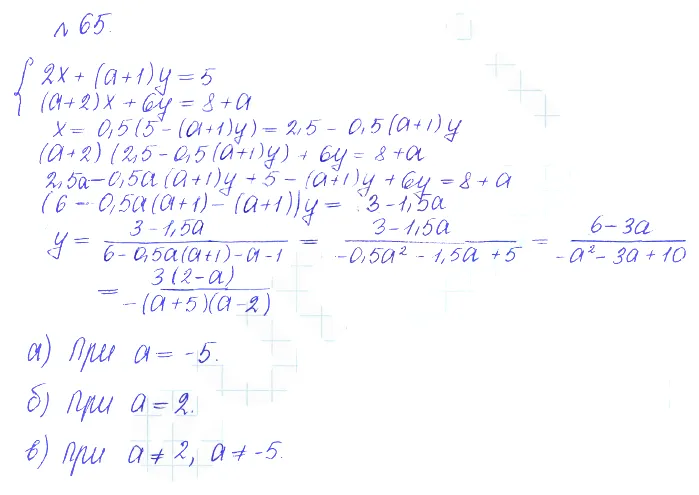 № 65.
2x + (a+1)y = 5
(a+2)x + 6y = 8+a
x = 0,5(5 - (a+1)y) = 2,5 - 0,5(a+1)y
(a+2)(2,5 - 0,5(a+1)y) + 6y = 8+a
2,5a - 0,5a(a+1)y + 5 - (a+1)y + 6y = 8+a
(6 - 0,5a(a+1) - (a+1))y = 3 - 1,5a
y = 3-1,5a / 6-0,5a(a+1)-a-1 = 3-1,5a / -0,5a² - 1,5a + 5 = 6-3a / -a² - 3a + 10
= 3(2-a) / -(a+5)(a-2)
а) При a = -5.
б) при a = 2.
в) при a ≠ 2, a ≠ -5.